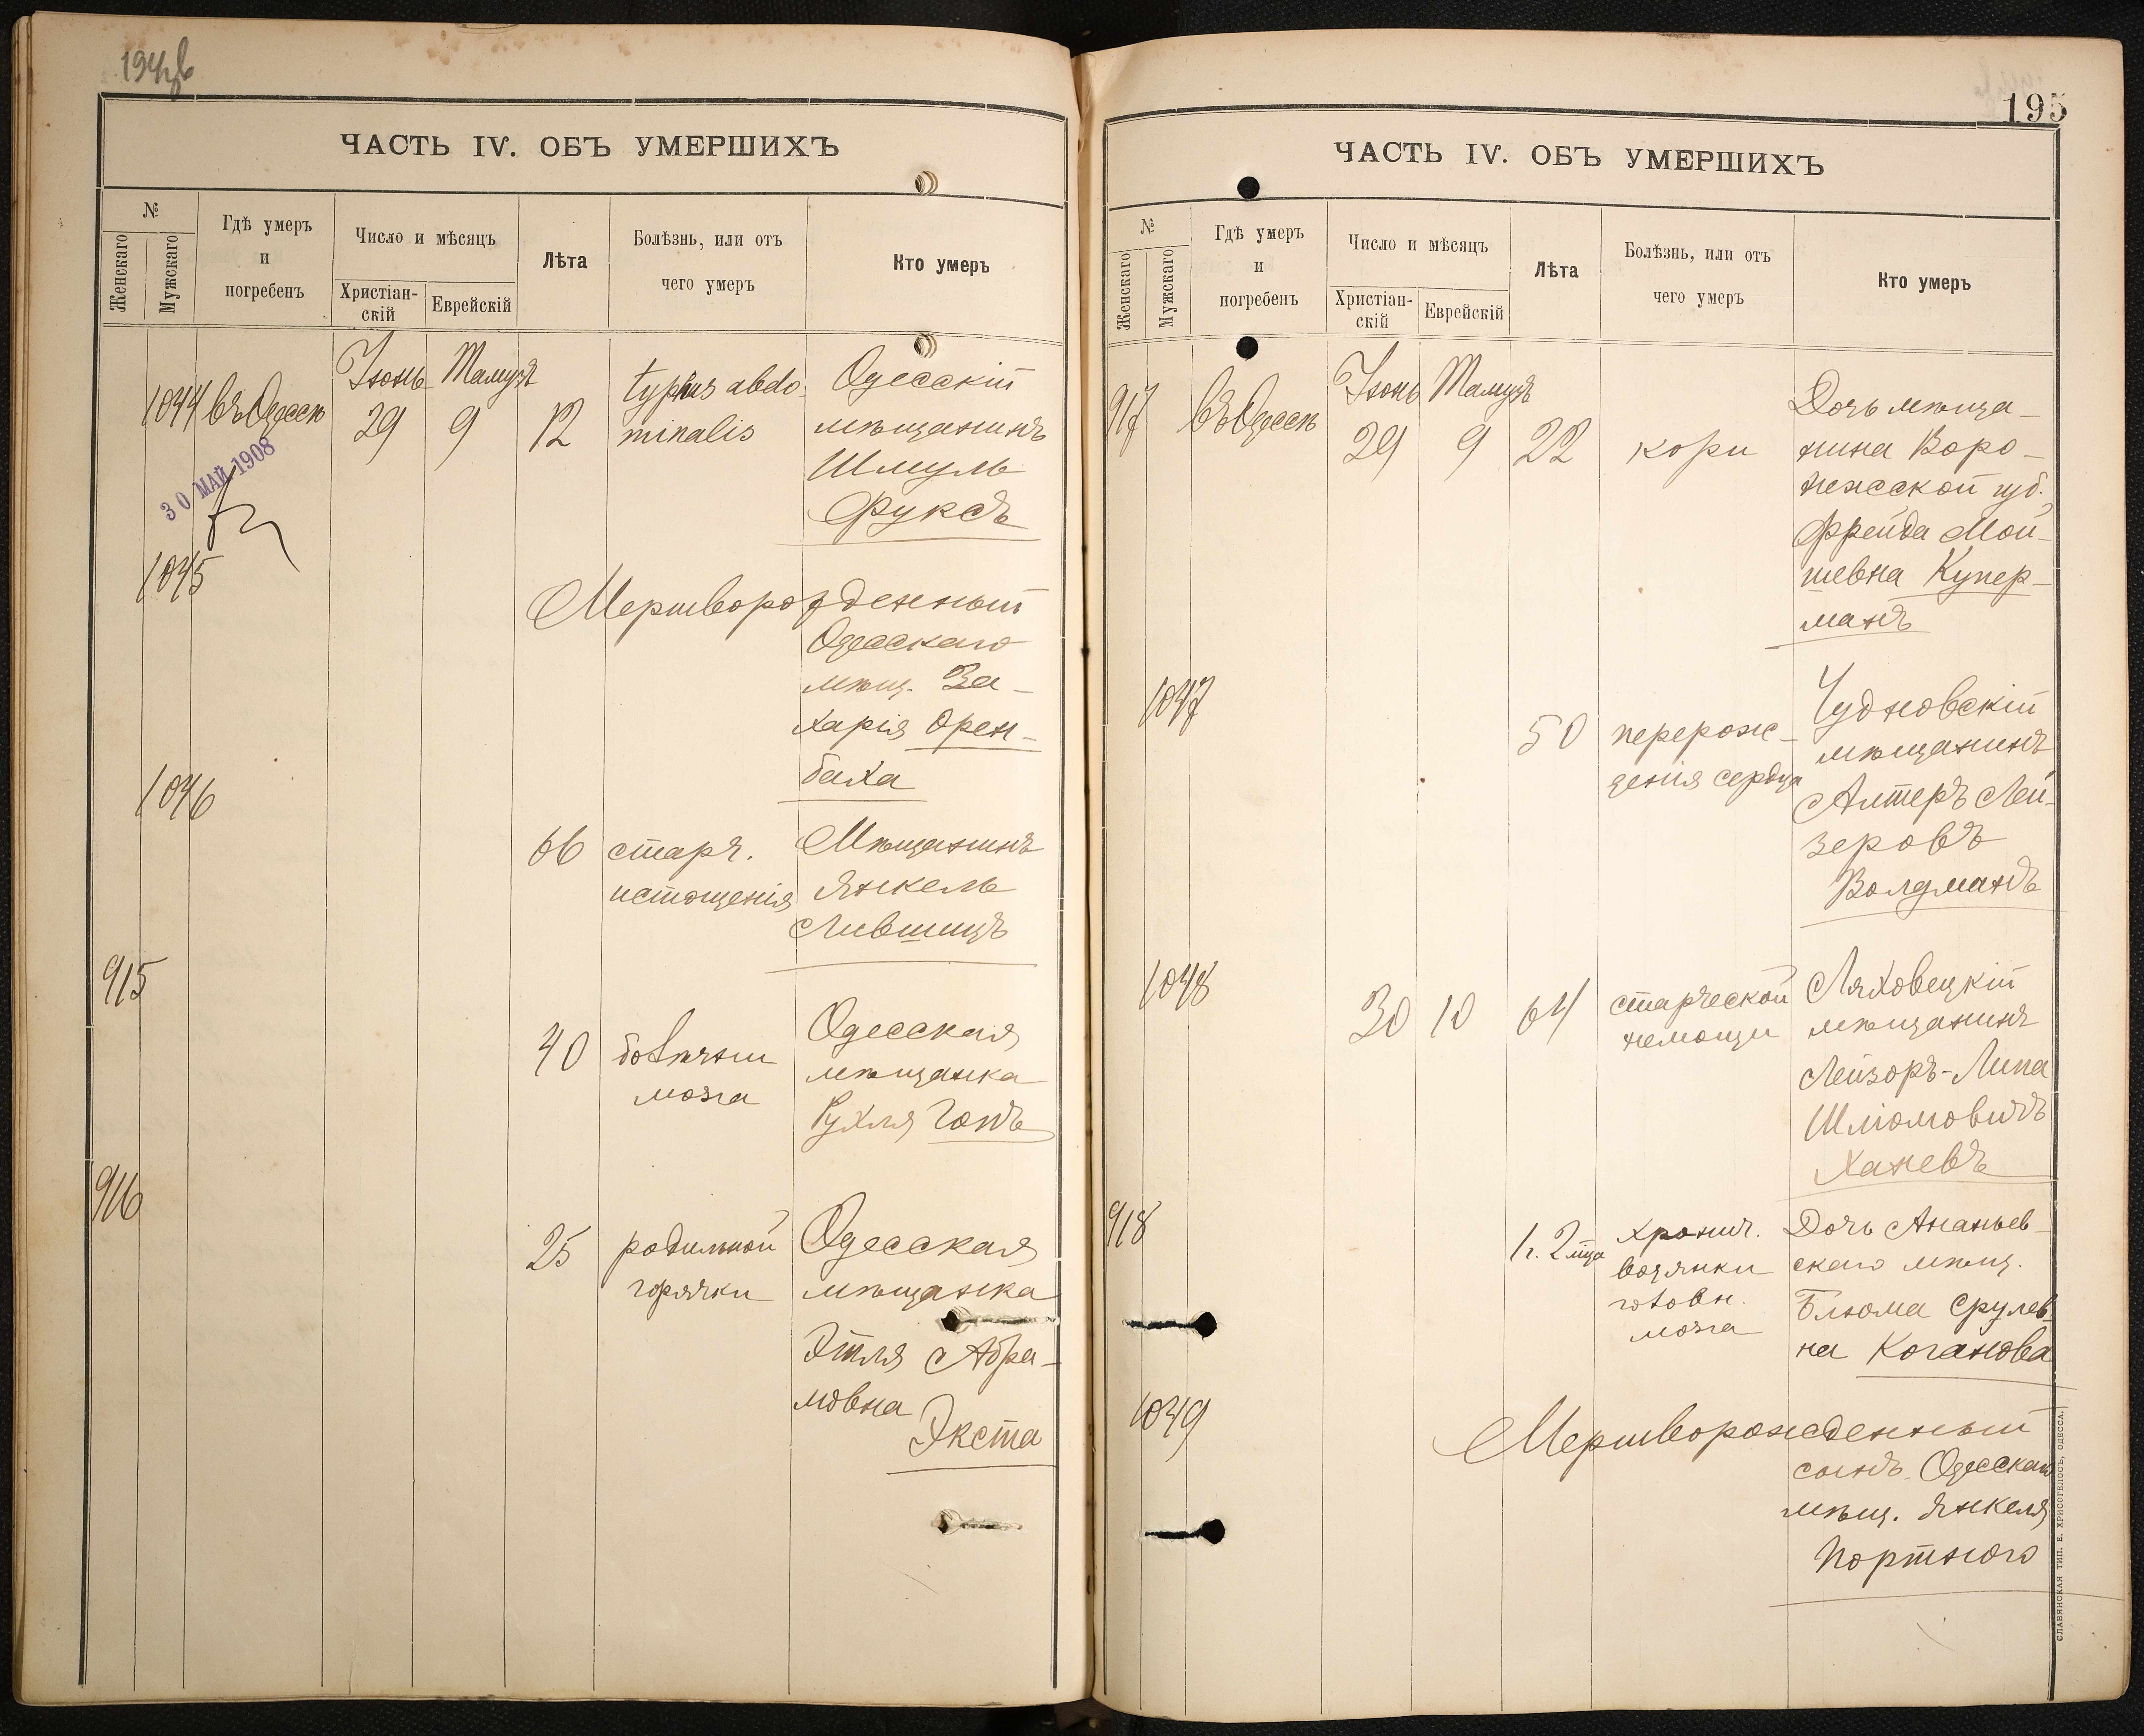 194 об
ЧАСТЬ IV. ОБЪ УМЕРШИХЪ
№
Женскаго
Мужскаго
Гдѣ умеръ
и
погребенъ
Число и мѣсяцъ
Христіан-
скій
Еврейскій
Лѣта
Болѣзнь, или отъ
чего умеръ
Кто умеръ
Іюнь Тамузъ
1044 въ Одессѣ 29 9 12
typhus abdo-
minalis
Одесскій
мѣщанинъ
Шмуль
Фуксъ
30 МАЙ 1908
1045
Мертворожденный
Одесскаго
мѣщ. За-
харія Орен-
баха
1046
66
старч.
истощенія
Мѣщанинъ
Янкель
Лившицъ
915
40
мозга
Одесская
мѣщанка
Рухля Гопъ
916
25
родильной
горячки
Одесская
мѣщанка
Этля Абра-
мовна
Экста
195
ЧАСТЬ IV. ОБЪ УМЕРШИХЪ
№
Женскаго
Мужскаго
Гдѣ умеръ
и
погребенъ
Число и мѣсяцъ
Христіан-
скій
Еврейскій
Лѣта
Болѣзнь, или отъ
чего умеръ
Кто умеръ
Іюнь Тамузъ
917 въ Одессѣ 29 9 22 кори
Дочь мѣща-
нина Воро-
нежской губ.
Фрейда Мой-
шевна Купер-
манъ
1047
50
перерож-
денія сердца
Чудновскій
мѣщанинъ
Алтеръ Лей-
зеровъ
Волдманъ
1048
30 10 64
старческой
немощи
Ляховецкій
мѣщанинъ
Лейзоръ-Липа
Шліомовичъ
Ханевъ
918
1 г. 2 мца
хронич.
водянки
головн.
мозга
Дочь Ананьев-
скаго мѣщ.
Блюма Срулев-
на Коганова
1049
Мертворожденный
сынъ Одесскаго
мѣщ. Янкеля
Портного
СЛАВЯНСКАЯ ТИП. Е. ХРИСОГЕЛОСЪ, ОДЕССА.